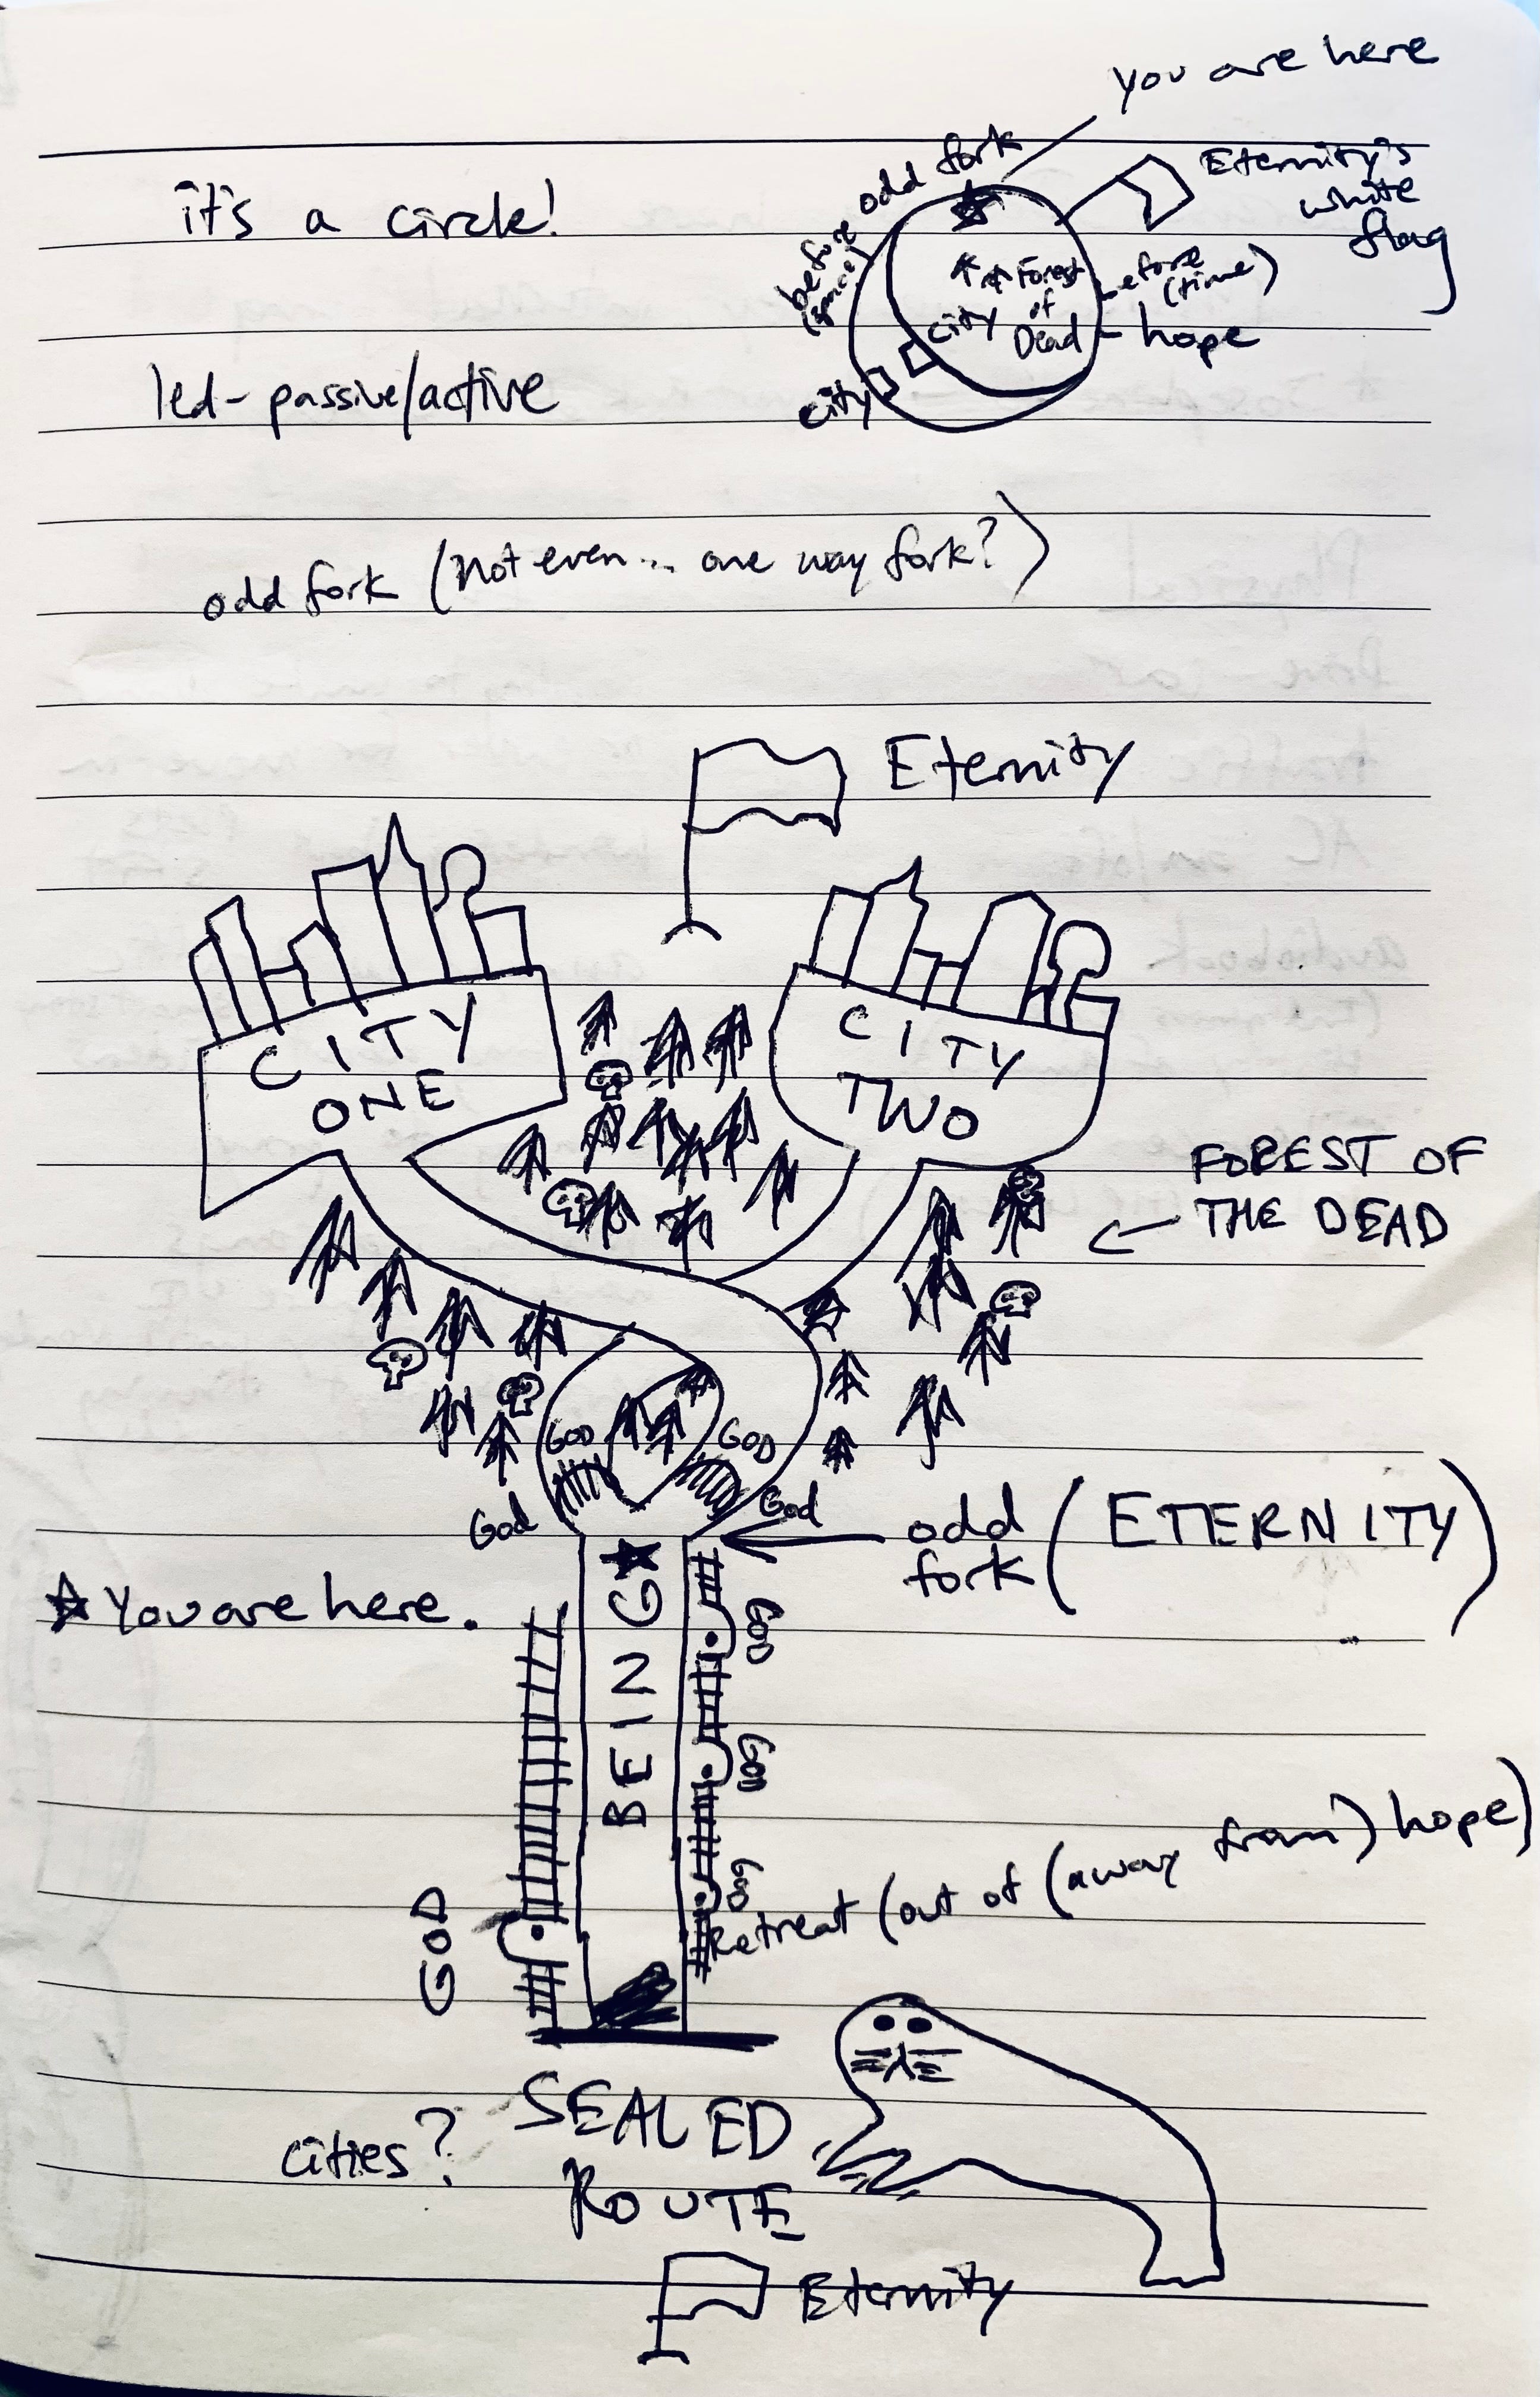 you are here
it's a circle!
odd fork
before
(space)
Eternity's
white
flag
Forest
of
Dead - hope
before
(time)
city
city
led - passive/active
odd fork (not even... one way fork?)
Eternity
CITY
ONE
CITY
TWO
FOREST OF
THE DEAD
GOD
GOD
God
God
odd
fork (ETERNITY)
You are here.
BEING
GOD
GOD
GOD
GOD
Retreat (out of (away from) hope)
SEALED
ROUTE
cities?
Eternity